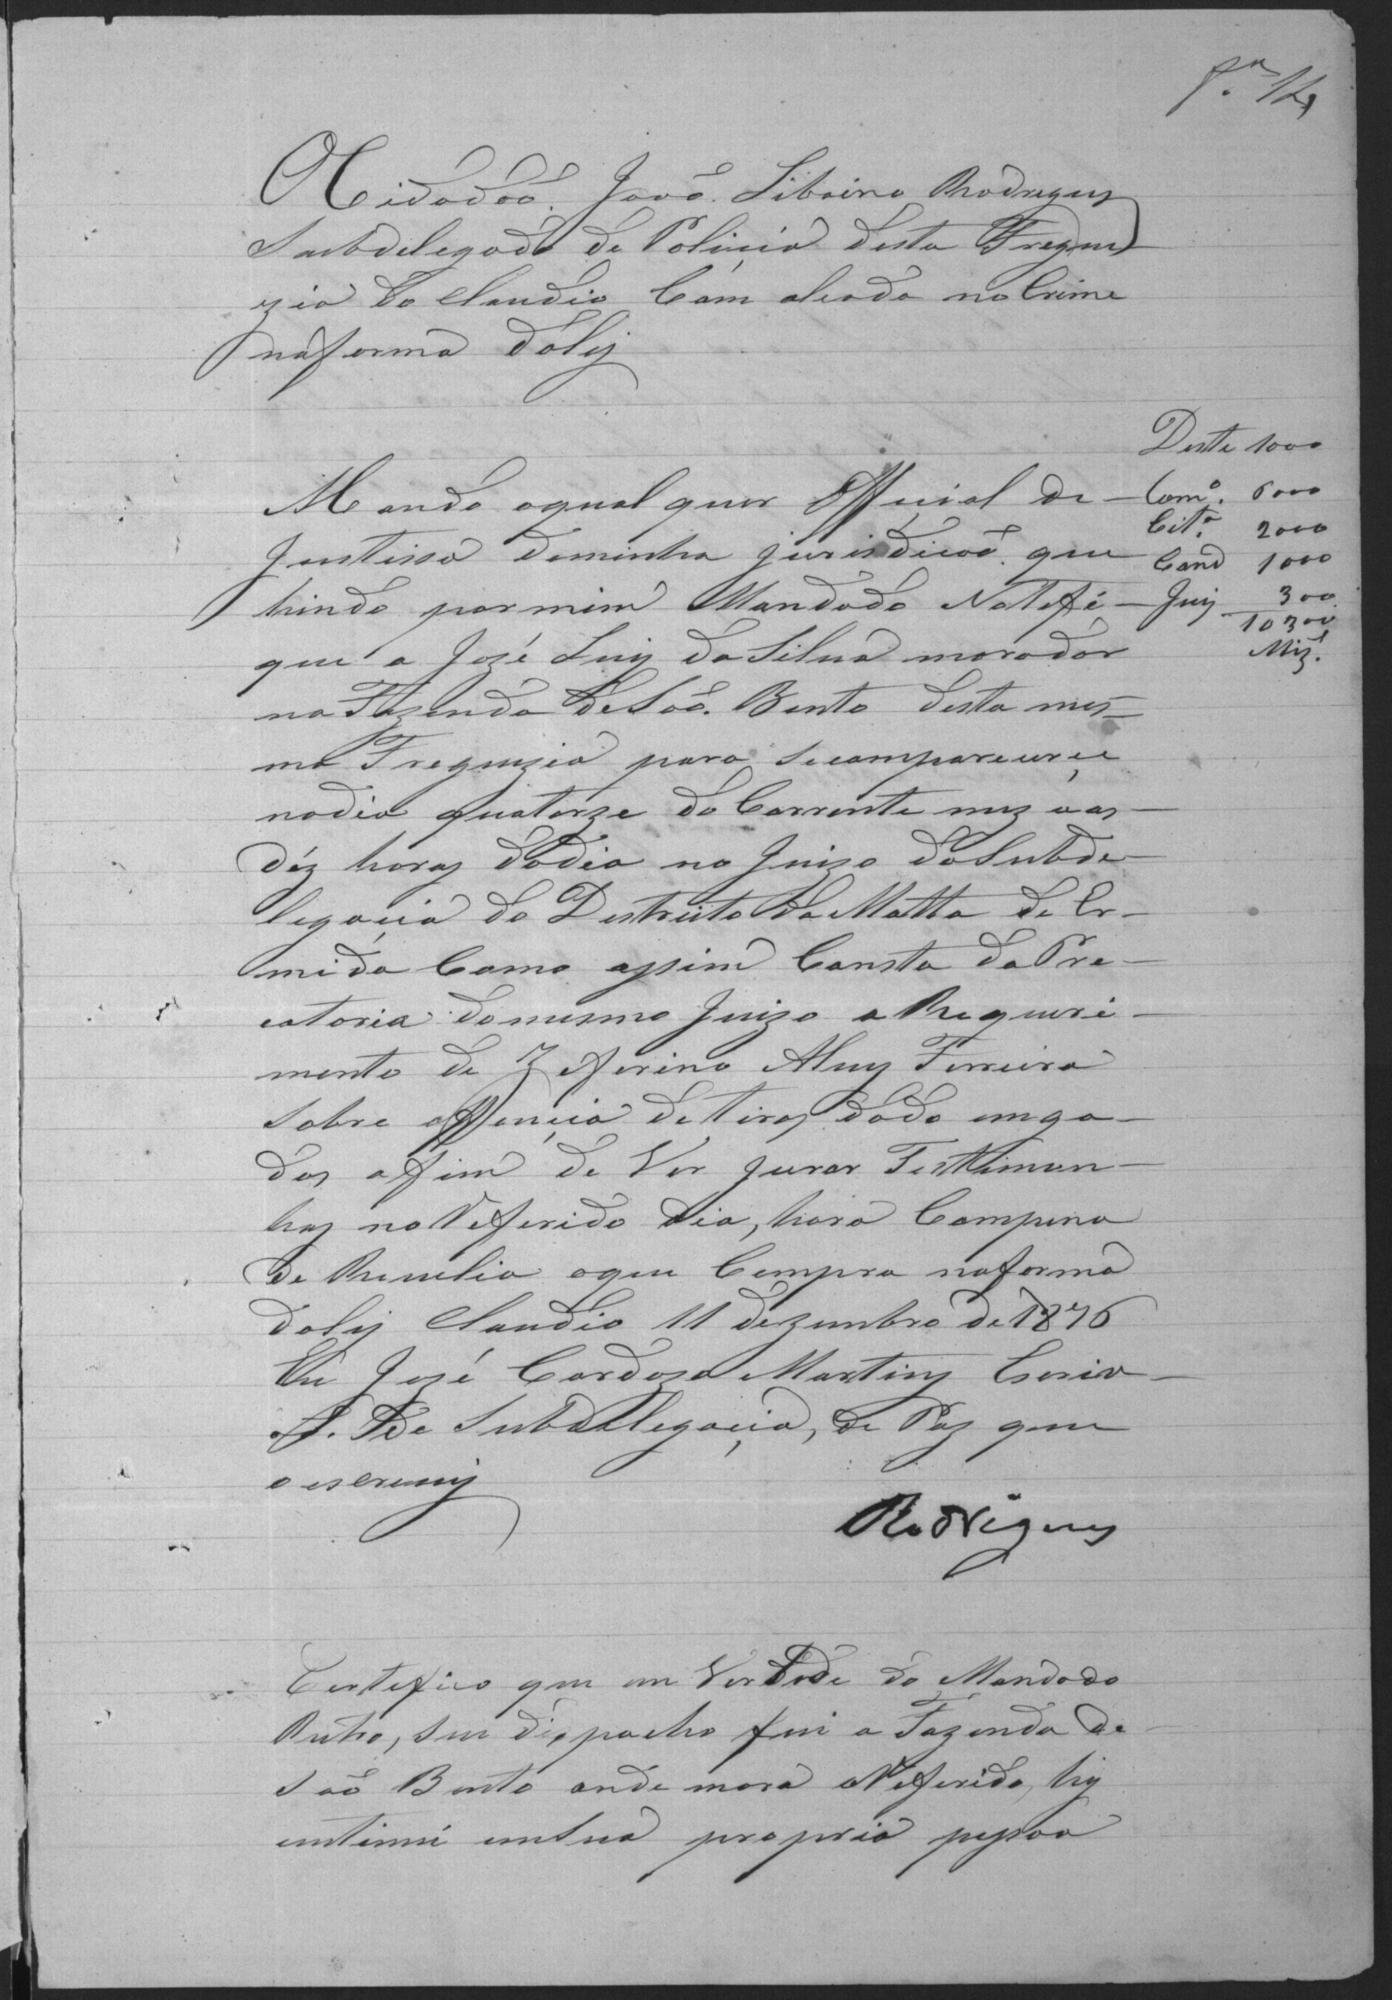 O Cidadão João Libaino Rodrigues
Subdelegado de Policia desta Fregue
zia do Claudio Com alcada no Crime
na forma daley
Deste 1000
Mando aqual quer Official de
Com.º 6000
Cit.ª 2000
Justissa deminha jurisdicaõ que
Cand 1000
hindo por mim Mandado Notefi
Juiz 300
10300
Miz.
que a José Luiz da Silva morador
na Fazenda de Saõ Bento desta mes
ma Freguezia para secomparecer
nodia quatorze do Corrente mez aas
déz horas dodia no Juizo da Subde
legacia do Destricto da Matta de Er
mida Como assim Consta da Pre
catoria domesmo Juizo a Requeri
mento de Zeferino Alves Ferreira
sobre offencia de tiros dado em ga
dos afim de Ver jurar Testimun
has no Referido dia, hora Compena
de Revelia oque Compra naforma
daley Claudio 11 dezembro de 1876
Eu José Cardozo Martins Escriv
de Subdelegacia, de Paz que
o escrevij
Rodrigues
Certefico que em Verdade do Mandado
Retro, seu dispacho fui a Fazenda de
Saõ Bento onde mora o Referido, hij
entimei emSua propria pessoa